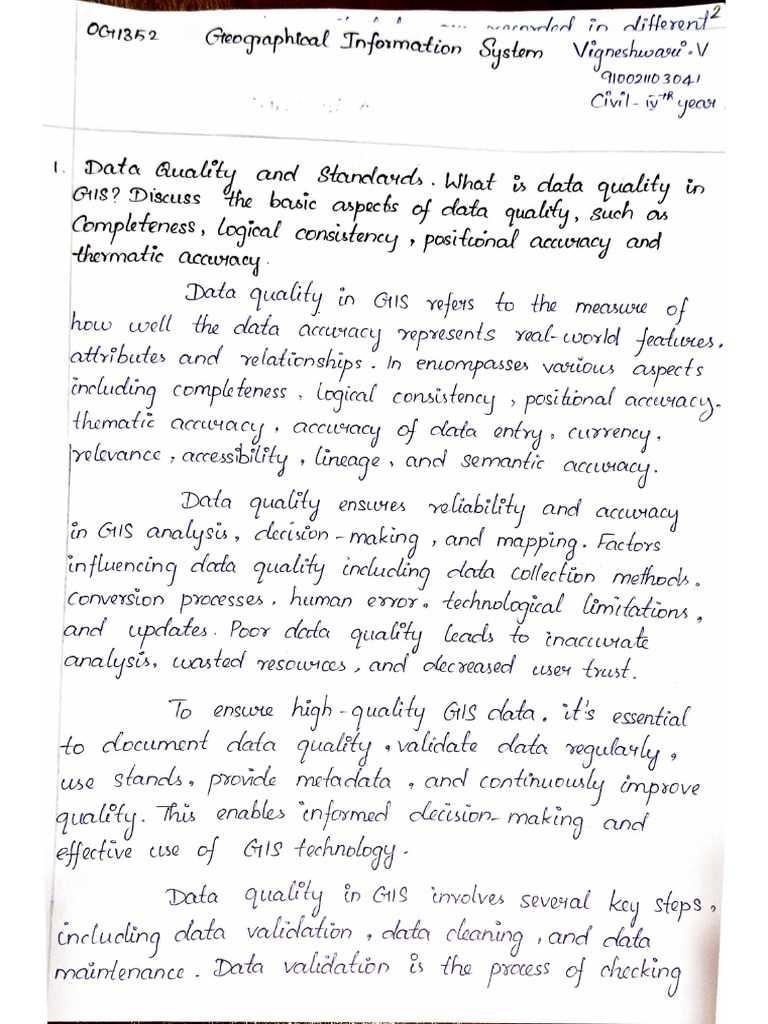 2
recorded in different
OGI352 Geographical Information System Vigneshwari.V
910021103041
Civil - iv TH year
1. Data Quality and Standards. What is data quality in
GIS? Discuss the basic aspects of data quality, such as
Completeness, logical consistency, positional accuracy and
thermatic accuracy.
Data quality in GIS refers to the measure of
how well the data accuracy represents real-world features,
attributes and relationships. In enompasses various aspects
including completeness, logical consistency, positional accuracy.
thematic accuracy, accuracy of data entry, currency,
relevance, accessibility, lineage, and semantic accuracy.
Data quality ensures reliability and accuracy
in GIS analysis, decision-making, and mapping. Factors
influencing data quality including data collection methods,
conversion processes, human error, technological limitations,
and updates. Poor data quality leads to inaccurate
analysis, wasted resources, and decreased user trust.
To ensure high-quality GIS data, it's essential
to document data quality, validate data regularly,
use stands, provide metadata, and continuously improve
quality. This enables informed decision-making and
effective use of GIS technology.
Data quality in GIS involves several key steps,
including data validation, data cleaning, and data
maintenance. Data validation is the process of checking